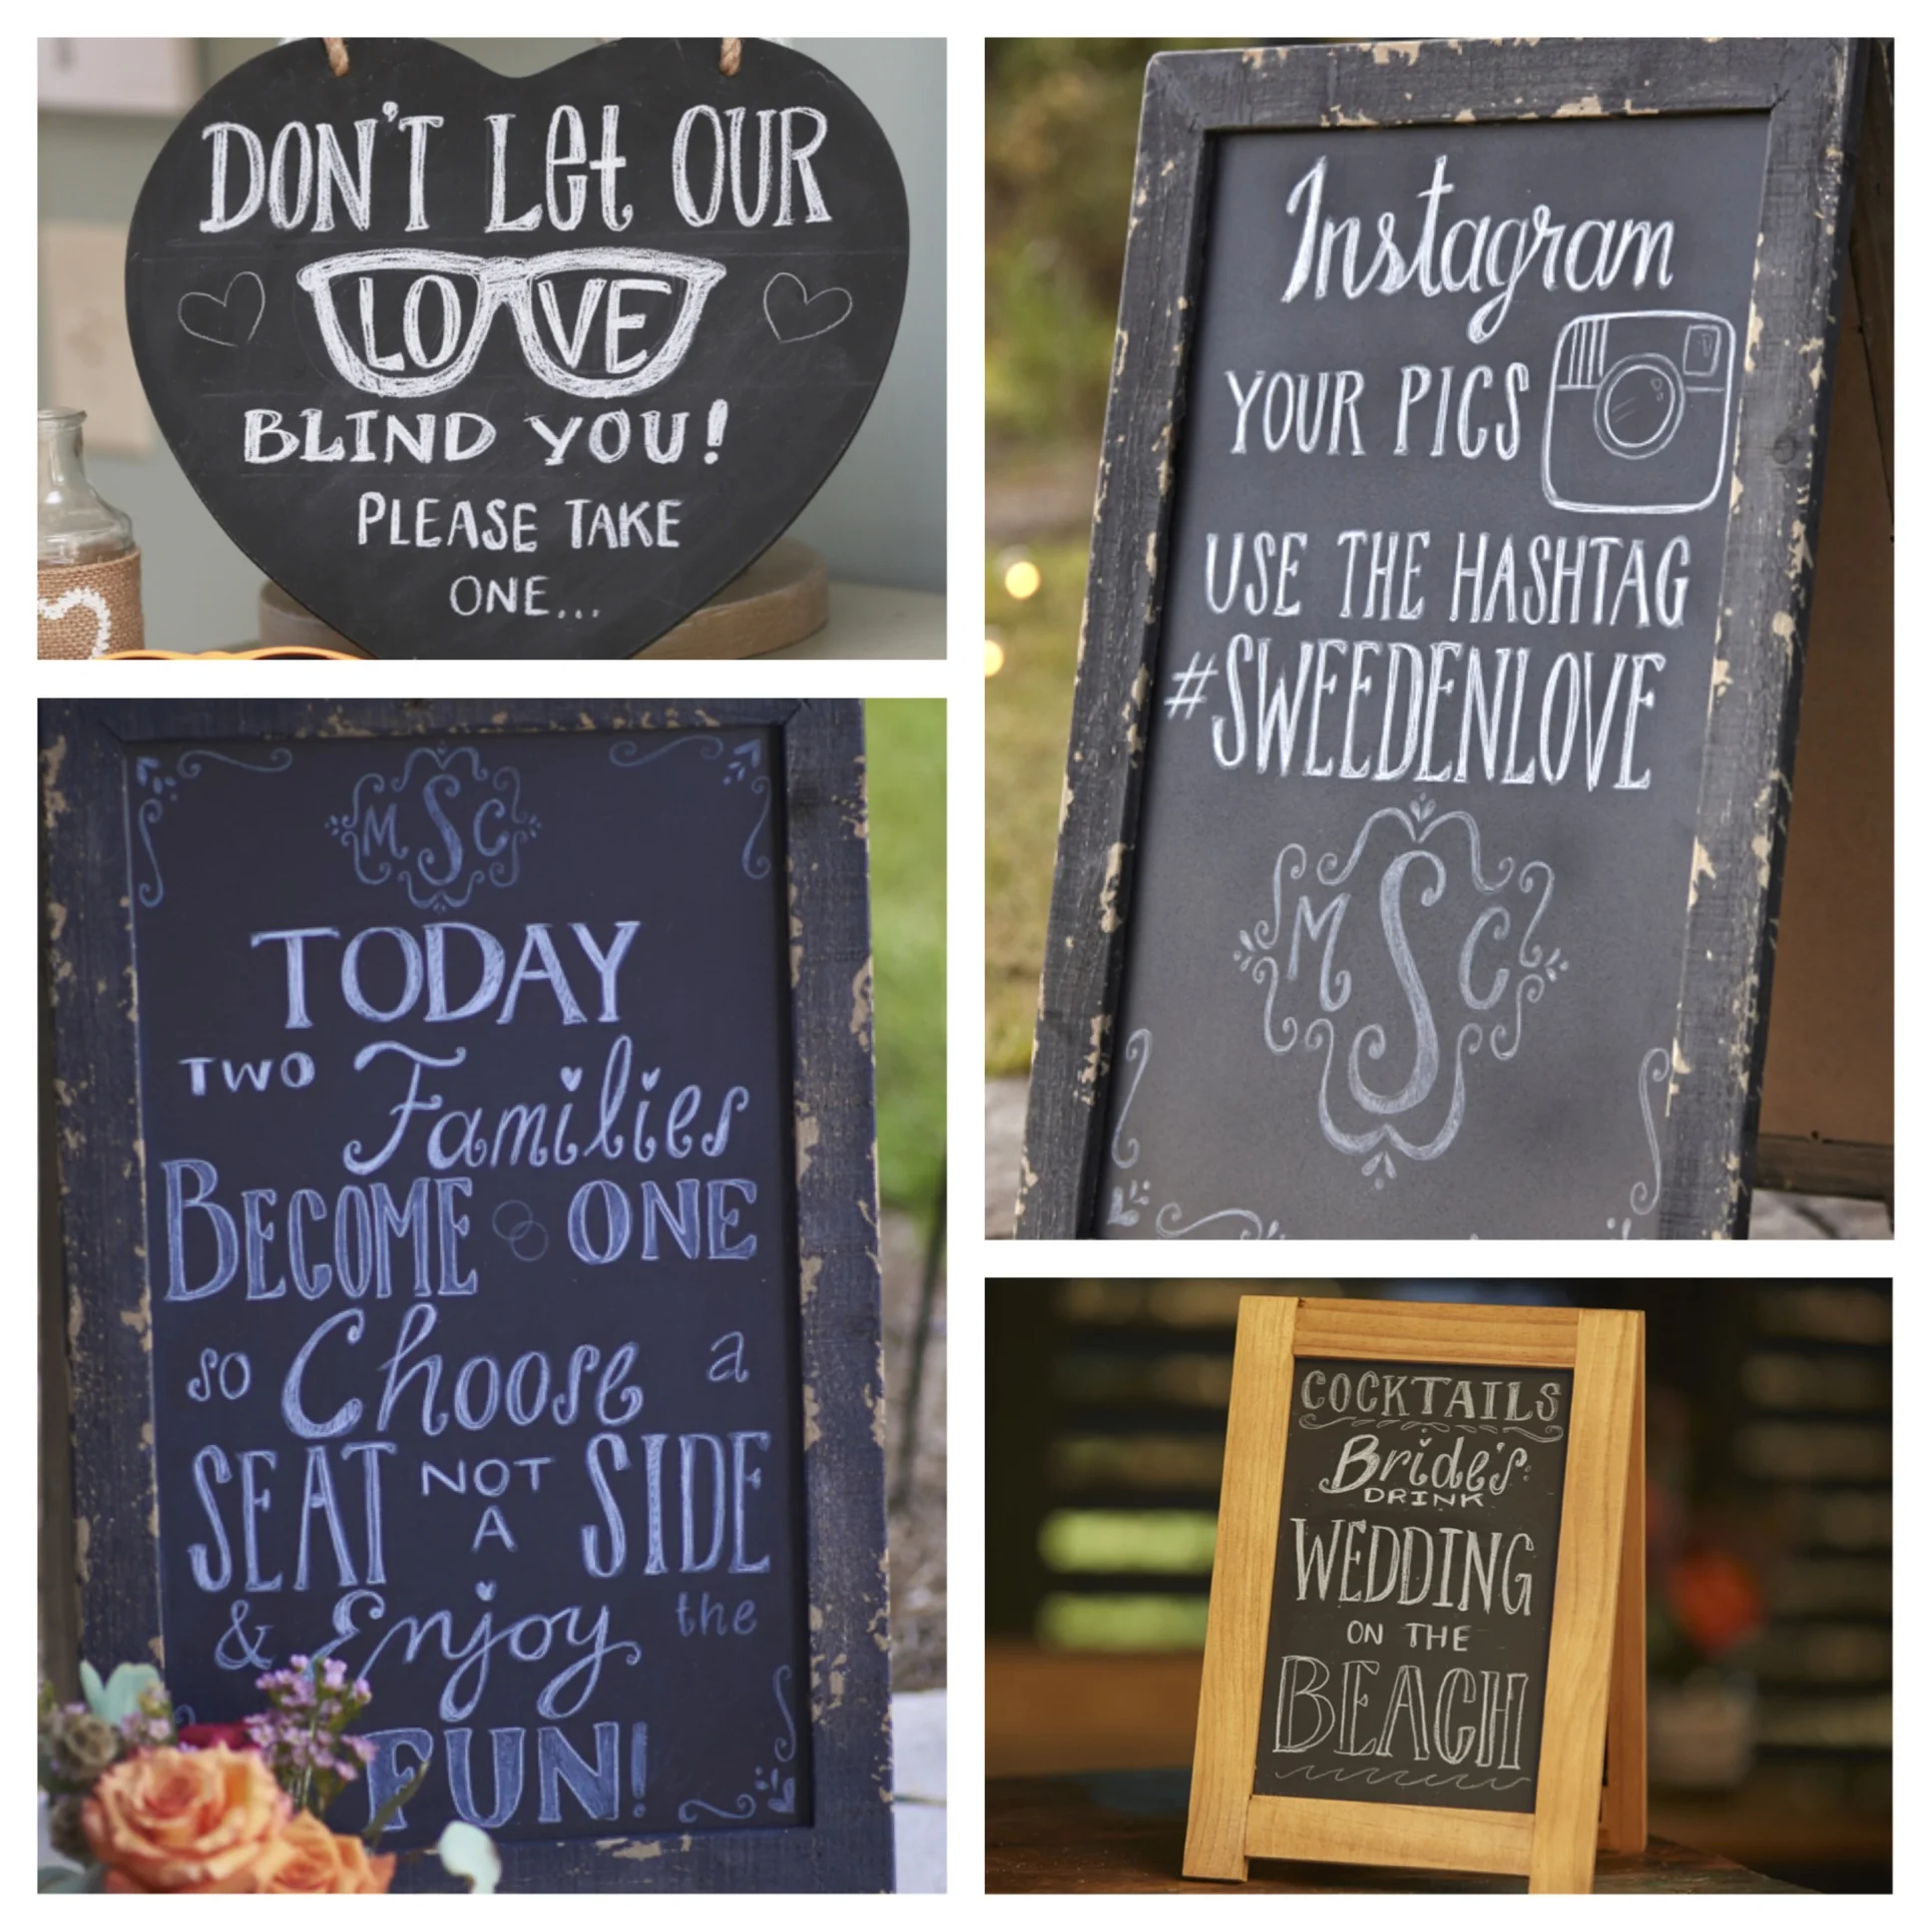 DON'T Let OUR
LOVE
BLIND YOU!
PLEASE TAKE
ONE...
Instagram
YOUR PICS
USE THE HASHTAG
#SWEEDENLOVE
MSC
MSC
TODAY
TWO Families
BECOME ONE
so Choose a
SEAT NOT A SIDE
& Enjoy the
FUN!
COCKTAILS
Bride's
DRINK
WEDDING
ON THE
BEACH